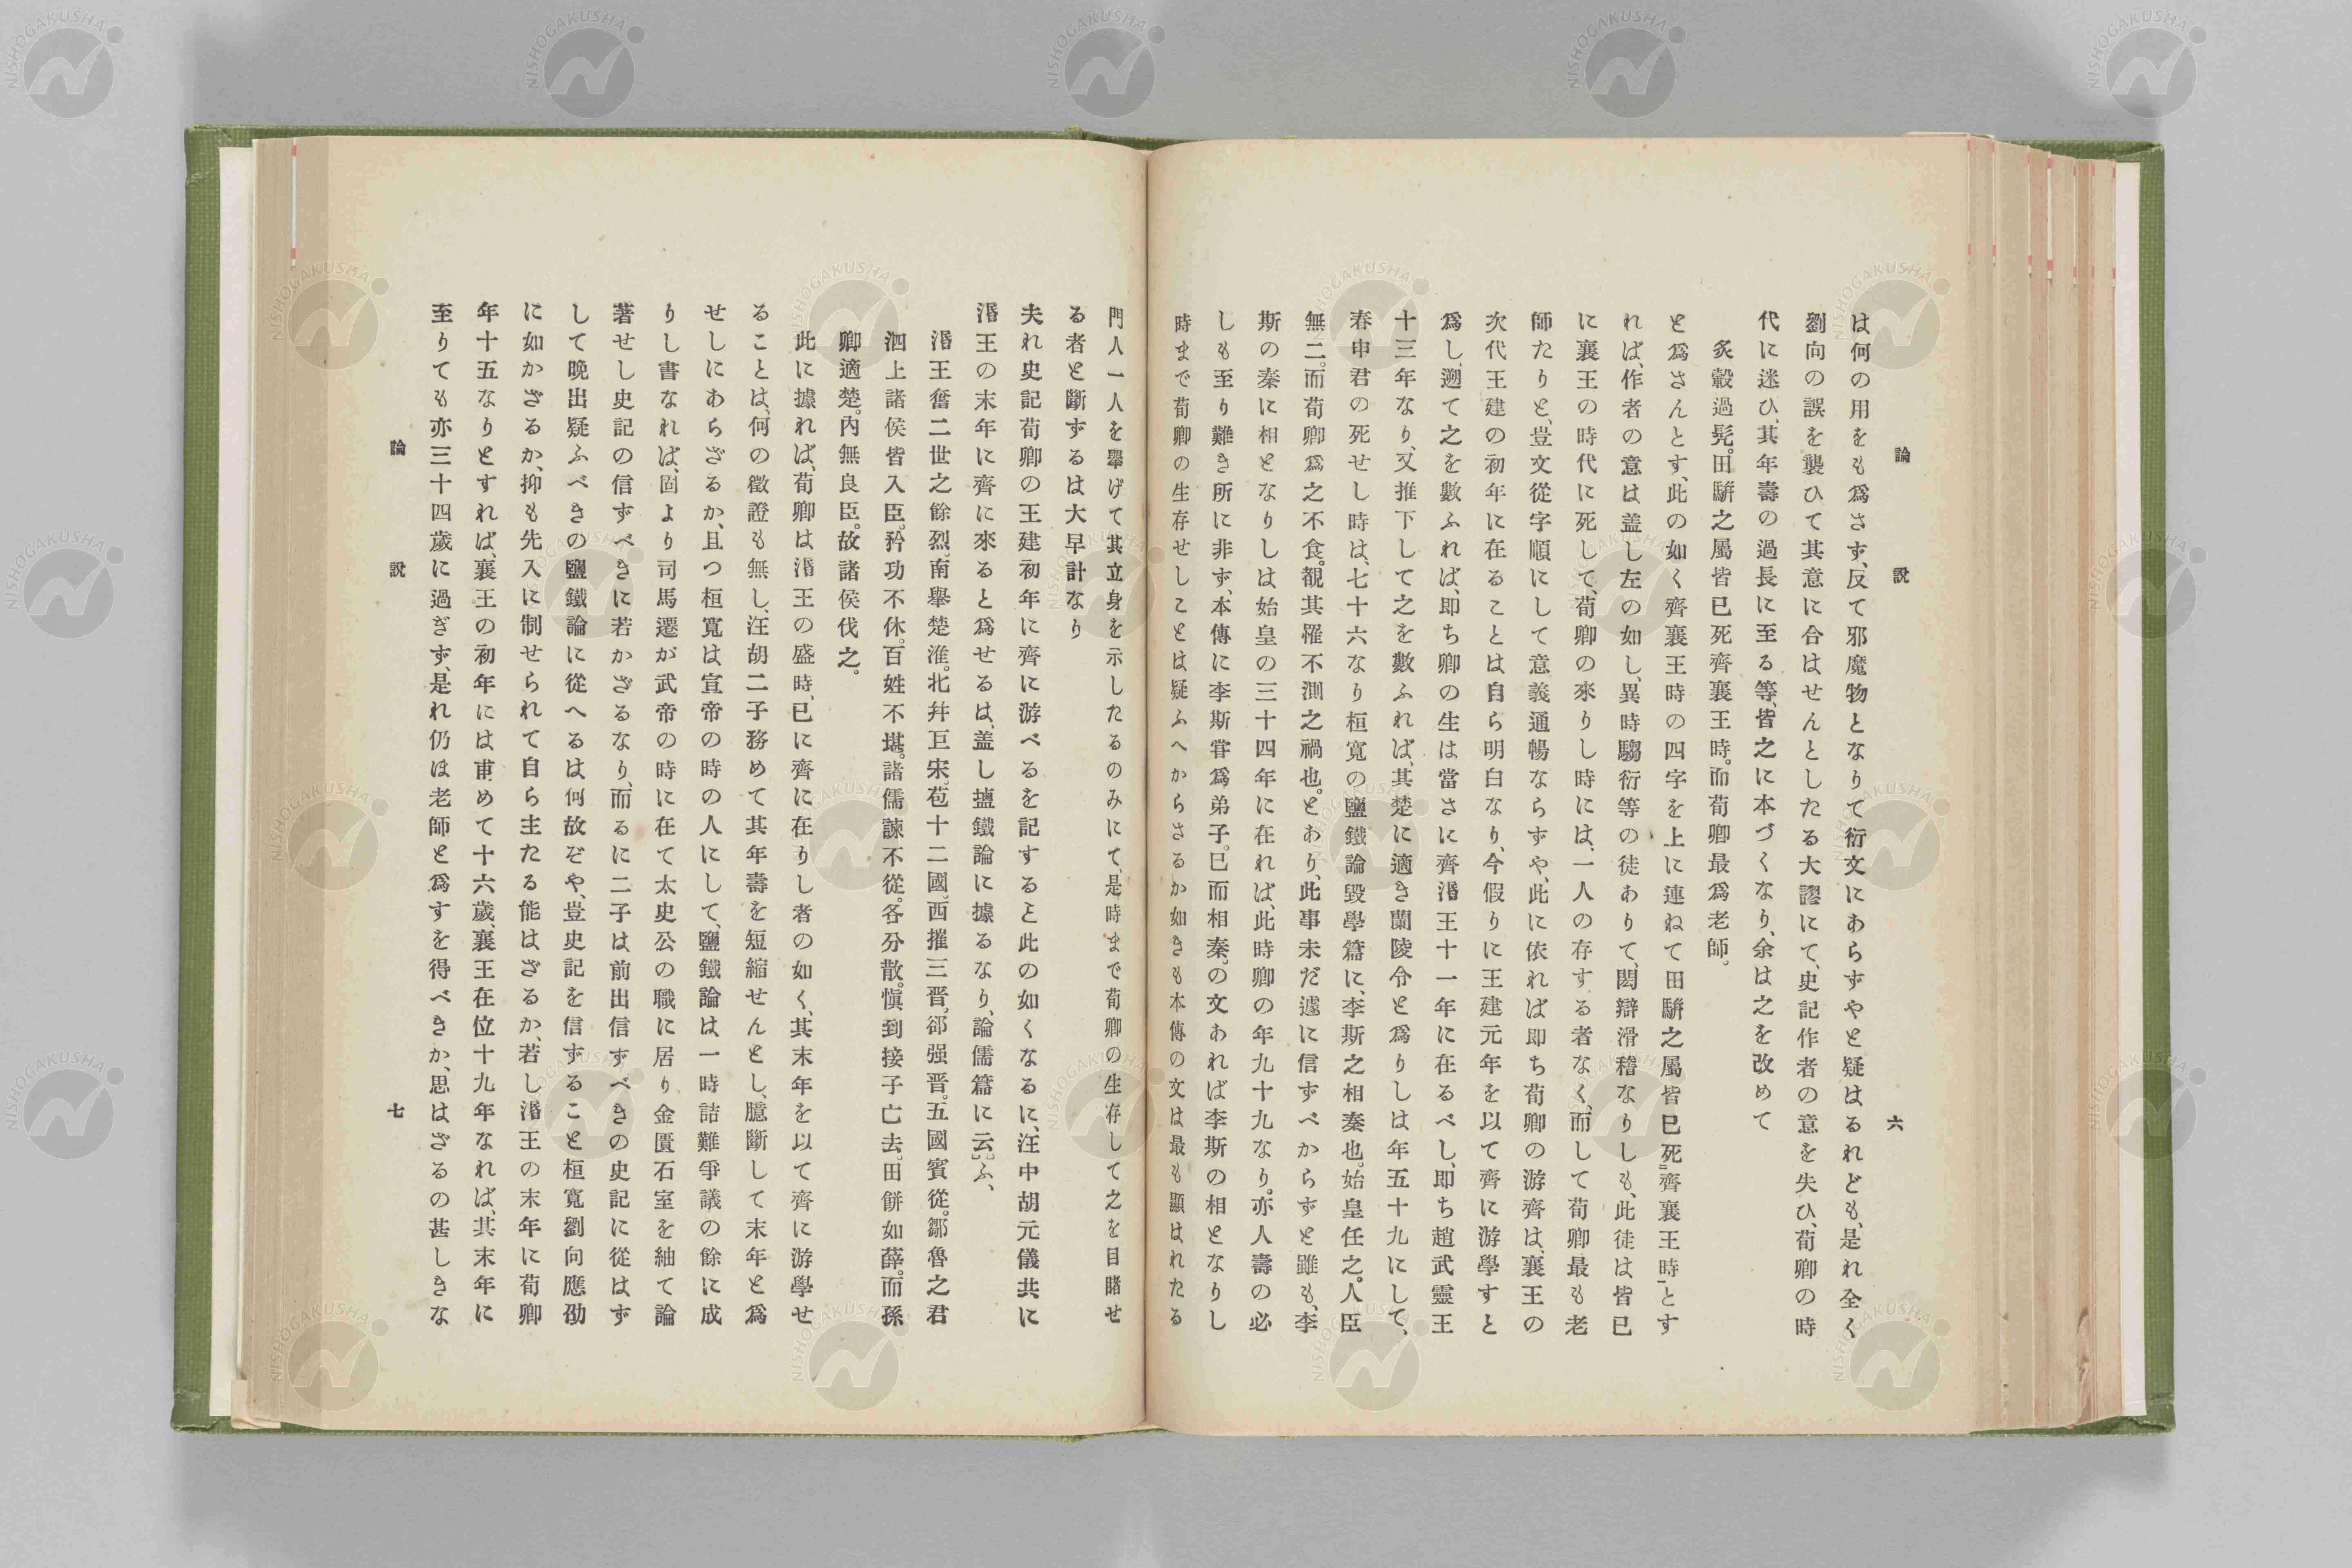 論 說 六
は何の用をも爲さず、反て邪魔物となりて衍文にあらずやと疑はるれども、是れ全く
劉向の誤を襲ひて其意に合はせんとしたる大謬にて、史記作者の意を失ひ、荀卿の時
代に迷ひ、其年壽の過長に至る等、皆之に本づくなり、余は之を改めて
炙轂過髡。田騈之屬皆已死齊襄王時。而荀卿最爲老師。
と爲さんとす、此の如く齊襄王時の四字を上に連ねて田騈之屬皆已死齊襄王時とす
れば、作者の意は盖し左の如し、異時騶衍等の徒ありて、閎辯滑稽なりしも、此徒は皆已
に襄王の時代に死して、荀卿の來りし時には、一人の存する者なく、而して荀卿最も老
師たりと、豈文從字順にして意義通暢ならずや、此に依れば即ち荀卿の游齊は、襄王の
次代王建の初年に在ることは自ら明白なり、今假りに王建元年を以て齊に游學すと
爲し、遡て之を數ふれば、即ち卿の生は當さに齊湣王十一年に在るべし、即ち趙武靈王
十三年なり、又推下して之を數ふれば、其楚に適き蘭陵令と爲りしは年五十九にして、
春申君の死せし時は、七十六なり桓寬の鹽鐵論毀學篇に、李斯之相秦也。始皇任之。人臣
無二。而荀卿爲之不食。覩其罹不測之禍也。とあり、此事未だ遽に信ずべからずと雖も、李
斯の秦に相となりしは始皇の三十四年に在れば、此時卿の年九十九なり。亦人壽の必
しも至り難き所に非ず、本傳に李斯甞爲弟子。已而相秦。の文あれば李斯の相となりし
時まで荀卿の生存せしことは疑ふへからさるか如きも本傳の文は最も顯はれたる
門人一人を舉げて其立身を示したるのみにて、是時まで荀卿の生存して之を目睹せ
る者と斷ずるは大早計なり
夫れ史記荀卿の王建初年に齊に游べるを記すること此の如くなるに、汪中胡元儀共に
湣王の末年に齊に來ると爲せるは、盖し鹽鐵論に據るなり、論儒篇に云ふ、
湣王奮二世之餘烈。南舉楚淮。北幷巨宋。苞十二國。西摧三晋。郤强晋。五國賓從。鄒魯之君
泗上諸侯皆入臣。矜功不休。百姓不堪。諸儒諫不從。各分散。愼到接子亡去。田餅如薛。而孫
卿適楚。內無良臣。故諸侯伐之。
此に據れば、荀卿は湣王の盛時、已に齊に在りし者の如く、其末年を以て齊に游學せ
ることは、何の徵證も無し、汪胡二子務めて其年壽を短縮せんとし、臆斷して末年と爲
せしにあらざるか、且つ桓寬は宣帝の時の人にして、鹽鐵論は一時詰難爭議の餘に成
りし書なれば、固より司馬遷が武帝の時に在て太史公の職に居り金匱石室を紬て論
著せし史記の信ずべきに若かざるなり、而るに二子は前出信ずべきの史記に從はず
して晚出疑ふべきの鹽鐵論に從へるは何故ぞや、豈史記を信ずること桓寬劉向應劭
に如かざるか、抑も先入に制せられて自ら主たる能はざるか、若し湣王の末年に荀卿
年十五なりとすれば、襄王の初年には甫めて十六歲、襄王在位十九年なれば、其末年に
至りても亦三十四歲に過ぎず、是れ仍ほ老師と爲すを得べきか、思はざるの甚しきな
論 說 七